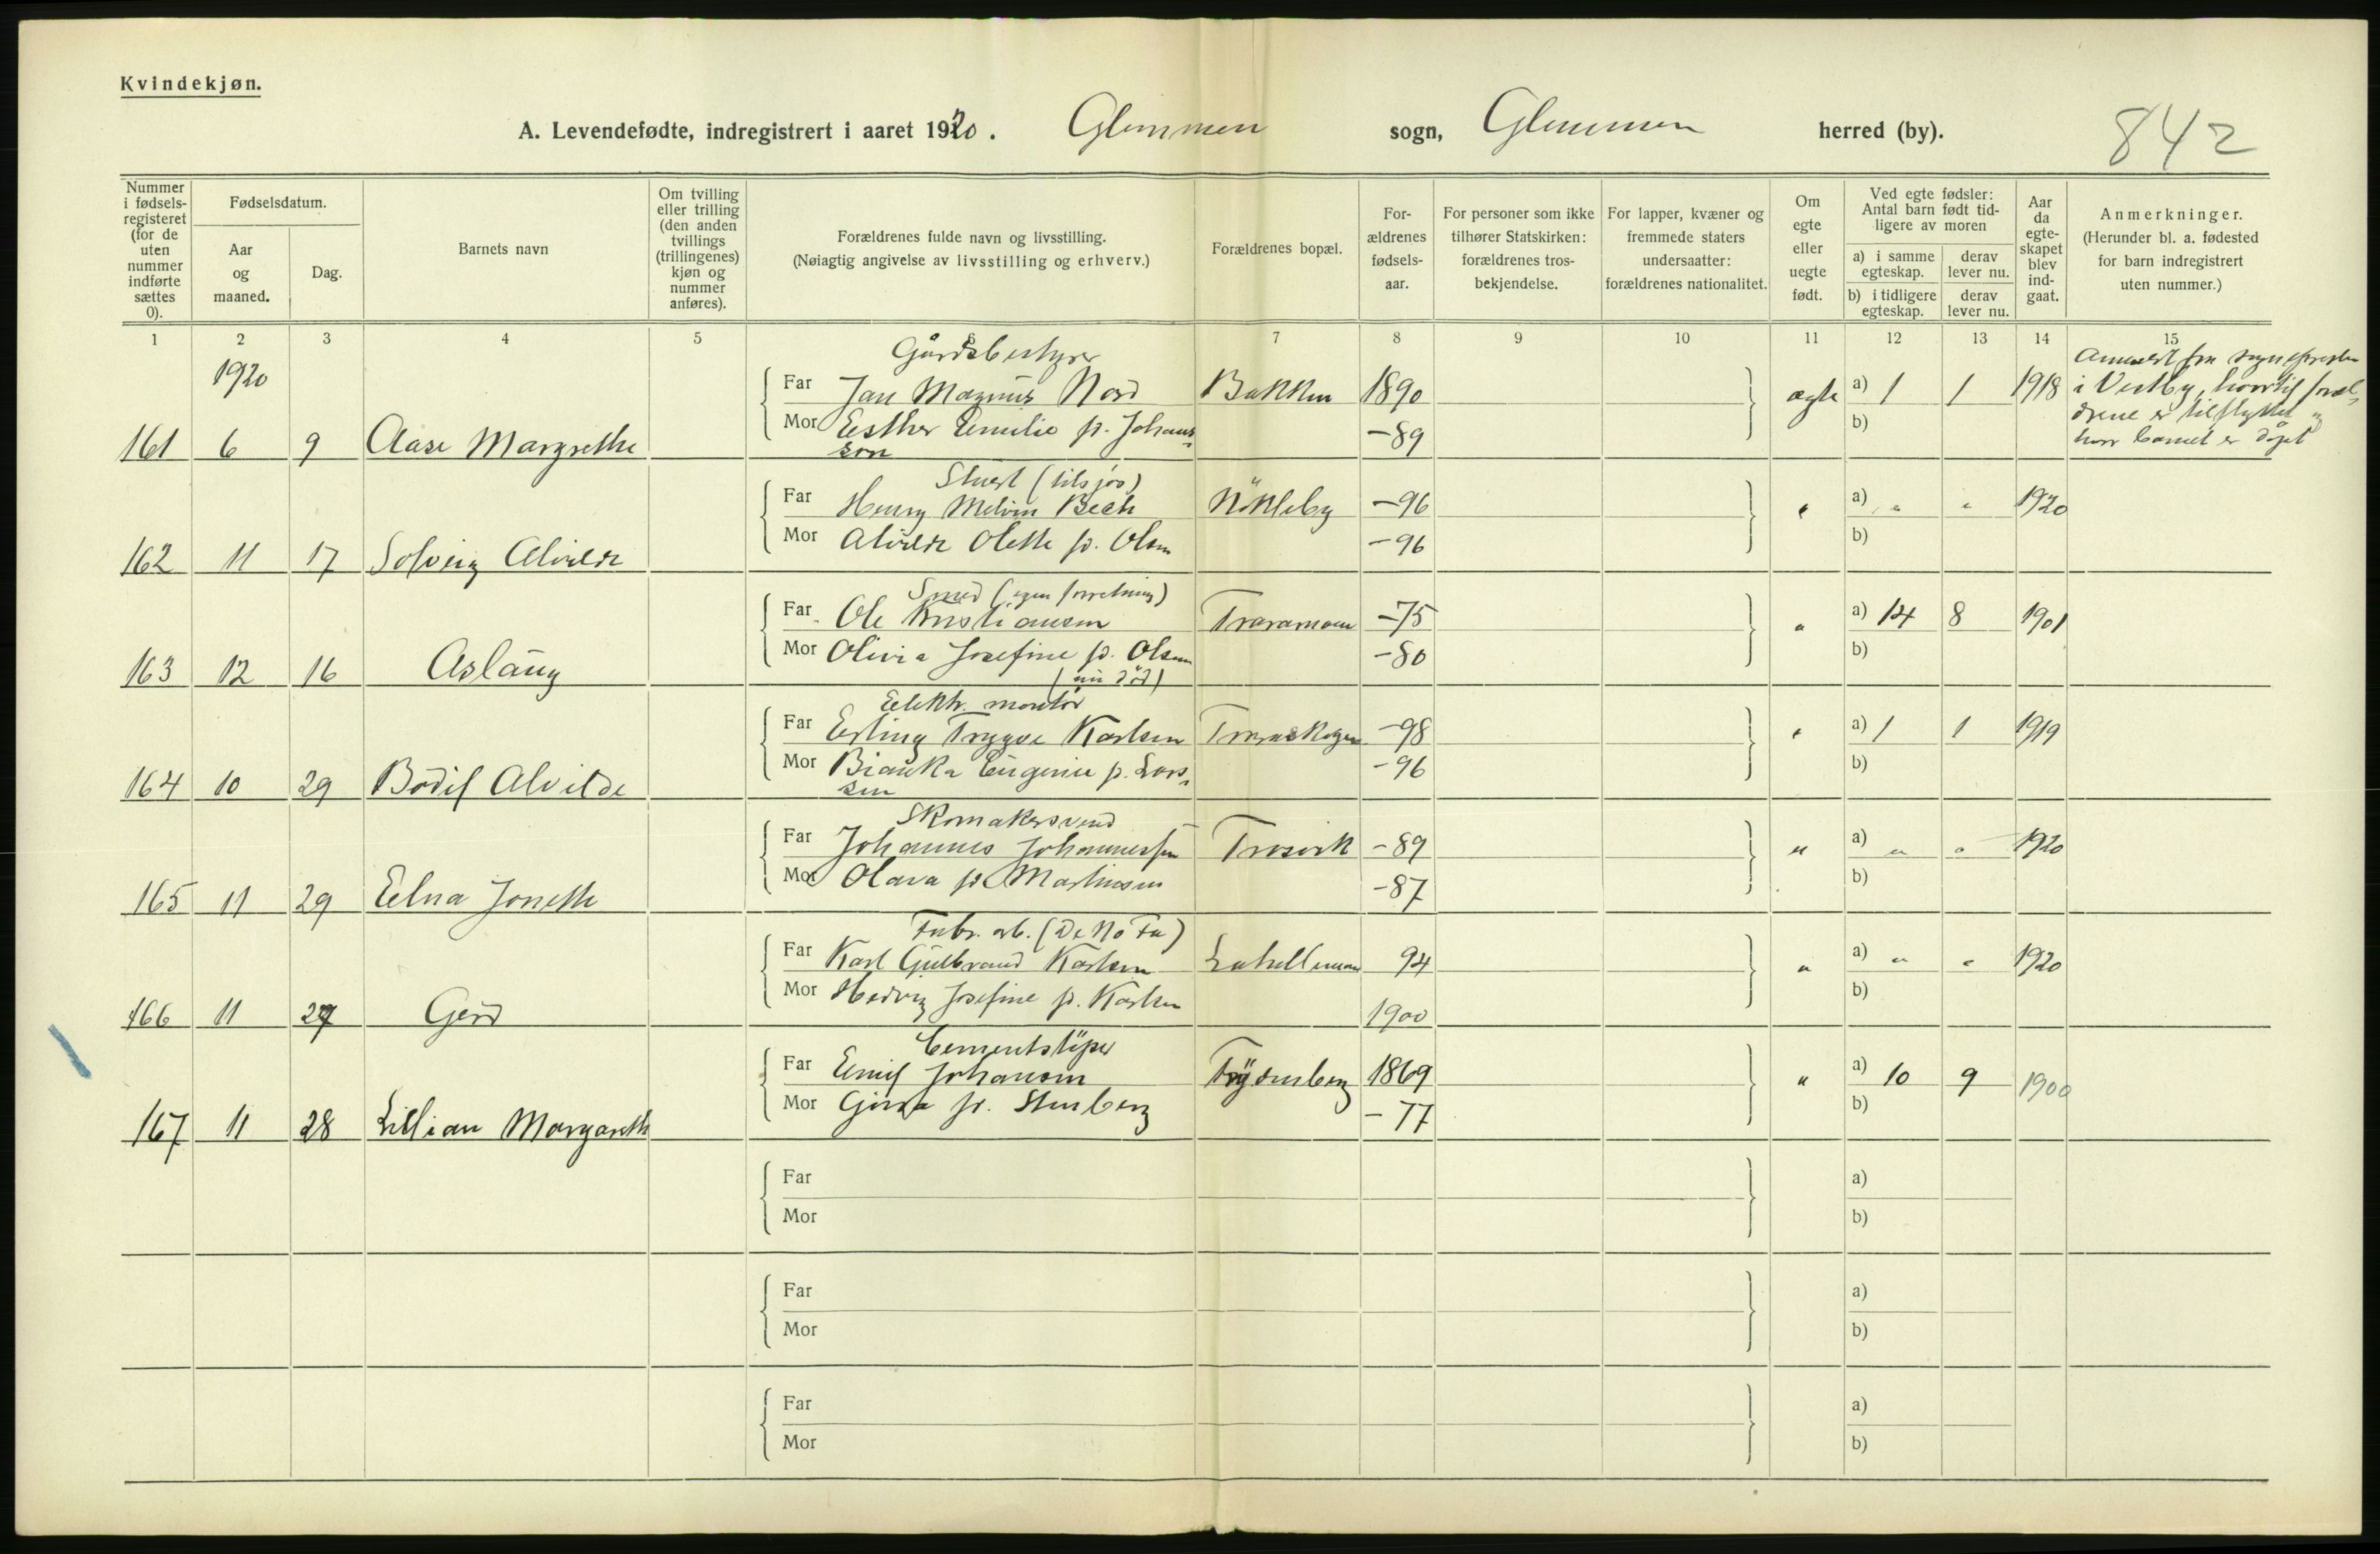 Kvindekjøn.
A. Levendefødte, indregistrert i aaret 1920. Glemmen sogn, Glemmen herred (by). 842
Nummer i fødselsregisteret (for de uten nummer indførte sættes 0).
Fødselsdatum.
Aar og maaned.
Dag.
Barnets navn
Om tvilling eller trilling (den anden tvillings (trillingenes) kjøn og nummer anføres).
Forældrenes fulde navn og livsstilling.
(Nøiagtig angivelse av livsstilling og erhverv.)
Forældrenes bopæl.
Forældrenes fødselsaar.
For personer som ikke tilhører Statskirken: forældrenes trosbekjendelse.
For lapper, kvæner og fremmede staters undersaatter: forældrenes nationalitet.
Om egte eller uegte født.
Ved egte fødsler: Antal barn født tidligere av moren
a) i samme egteskap. derav lever nu.
b) i tidligere egteskap. derav lever nu.
Aar da egteskapet blev indgaat.
Anmerkninger.
(Herunder bl. a. fødested for barn indregistrert uten nummer.)
1 2 3 4 5 7 8 9 10 11 12 13 14 15
1920
Gårdsbestyrer
Far Jan Magnus Nord Bakken 1890 ægte a) 1 1 1918
Mor Esther Emilie f. Johans- -89 b)
son
161 6 9 Aase Margrethe
Anmeldt fra sognepresten
i Vestby, hvortil foræl-
drene er tilflyttet
hvor barnet er døpt
Stuert (tilsjøs)
Far Henry Melvin Bech Nökleby -96 " a) " " 1920
Mor Alvilde Olette f. Olsen -96 b)
162 11 17 Solveig Alvilde
Smed (egen forretning)
Far Ole Kristiansen Traramoen -75 " a) 14 8 1901
Mor Olivia Josefine f. Olsen -80 b)
(nu död)
163 12 16 Aslaug
Elektr. montör
Far Erling Trygve Karlsen -98 " a) 1 1 1919
Mor Bianka Eugenie f. Lars- -96 b)
sen
164 10 29 Bodil Alvilde
Skomakersvend
Far Johannes Johannessen Trosvik -89 " a) " " 1920
Mor Olava f. Martinsen -87 b)
165 11 29 Elna Jonette
Fabr. arb. (De No Fa)
Far Karl Gulbrand Karlsen Lahellemoen 94 " a) " " 1920
Mor Hedvig Josefine f. Karlsen 1900 b)
166 11 27 Gerd
Cementstöper
Far Emil Johansen 1869 " a) 10 9 1900
Mor Gina f. Stenberg -77 b)
167 11 28 Lillian Margareth
Far a)
Mor b)
Far a)
Mor b)
Far a)
Mor b)